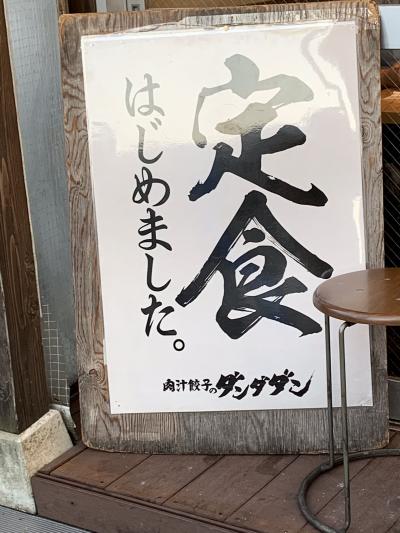 定食
はじめました。
肉汁餃子のダンダダン